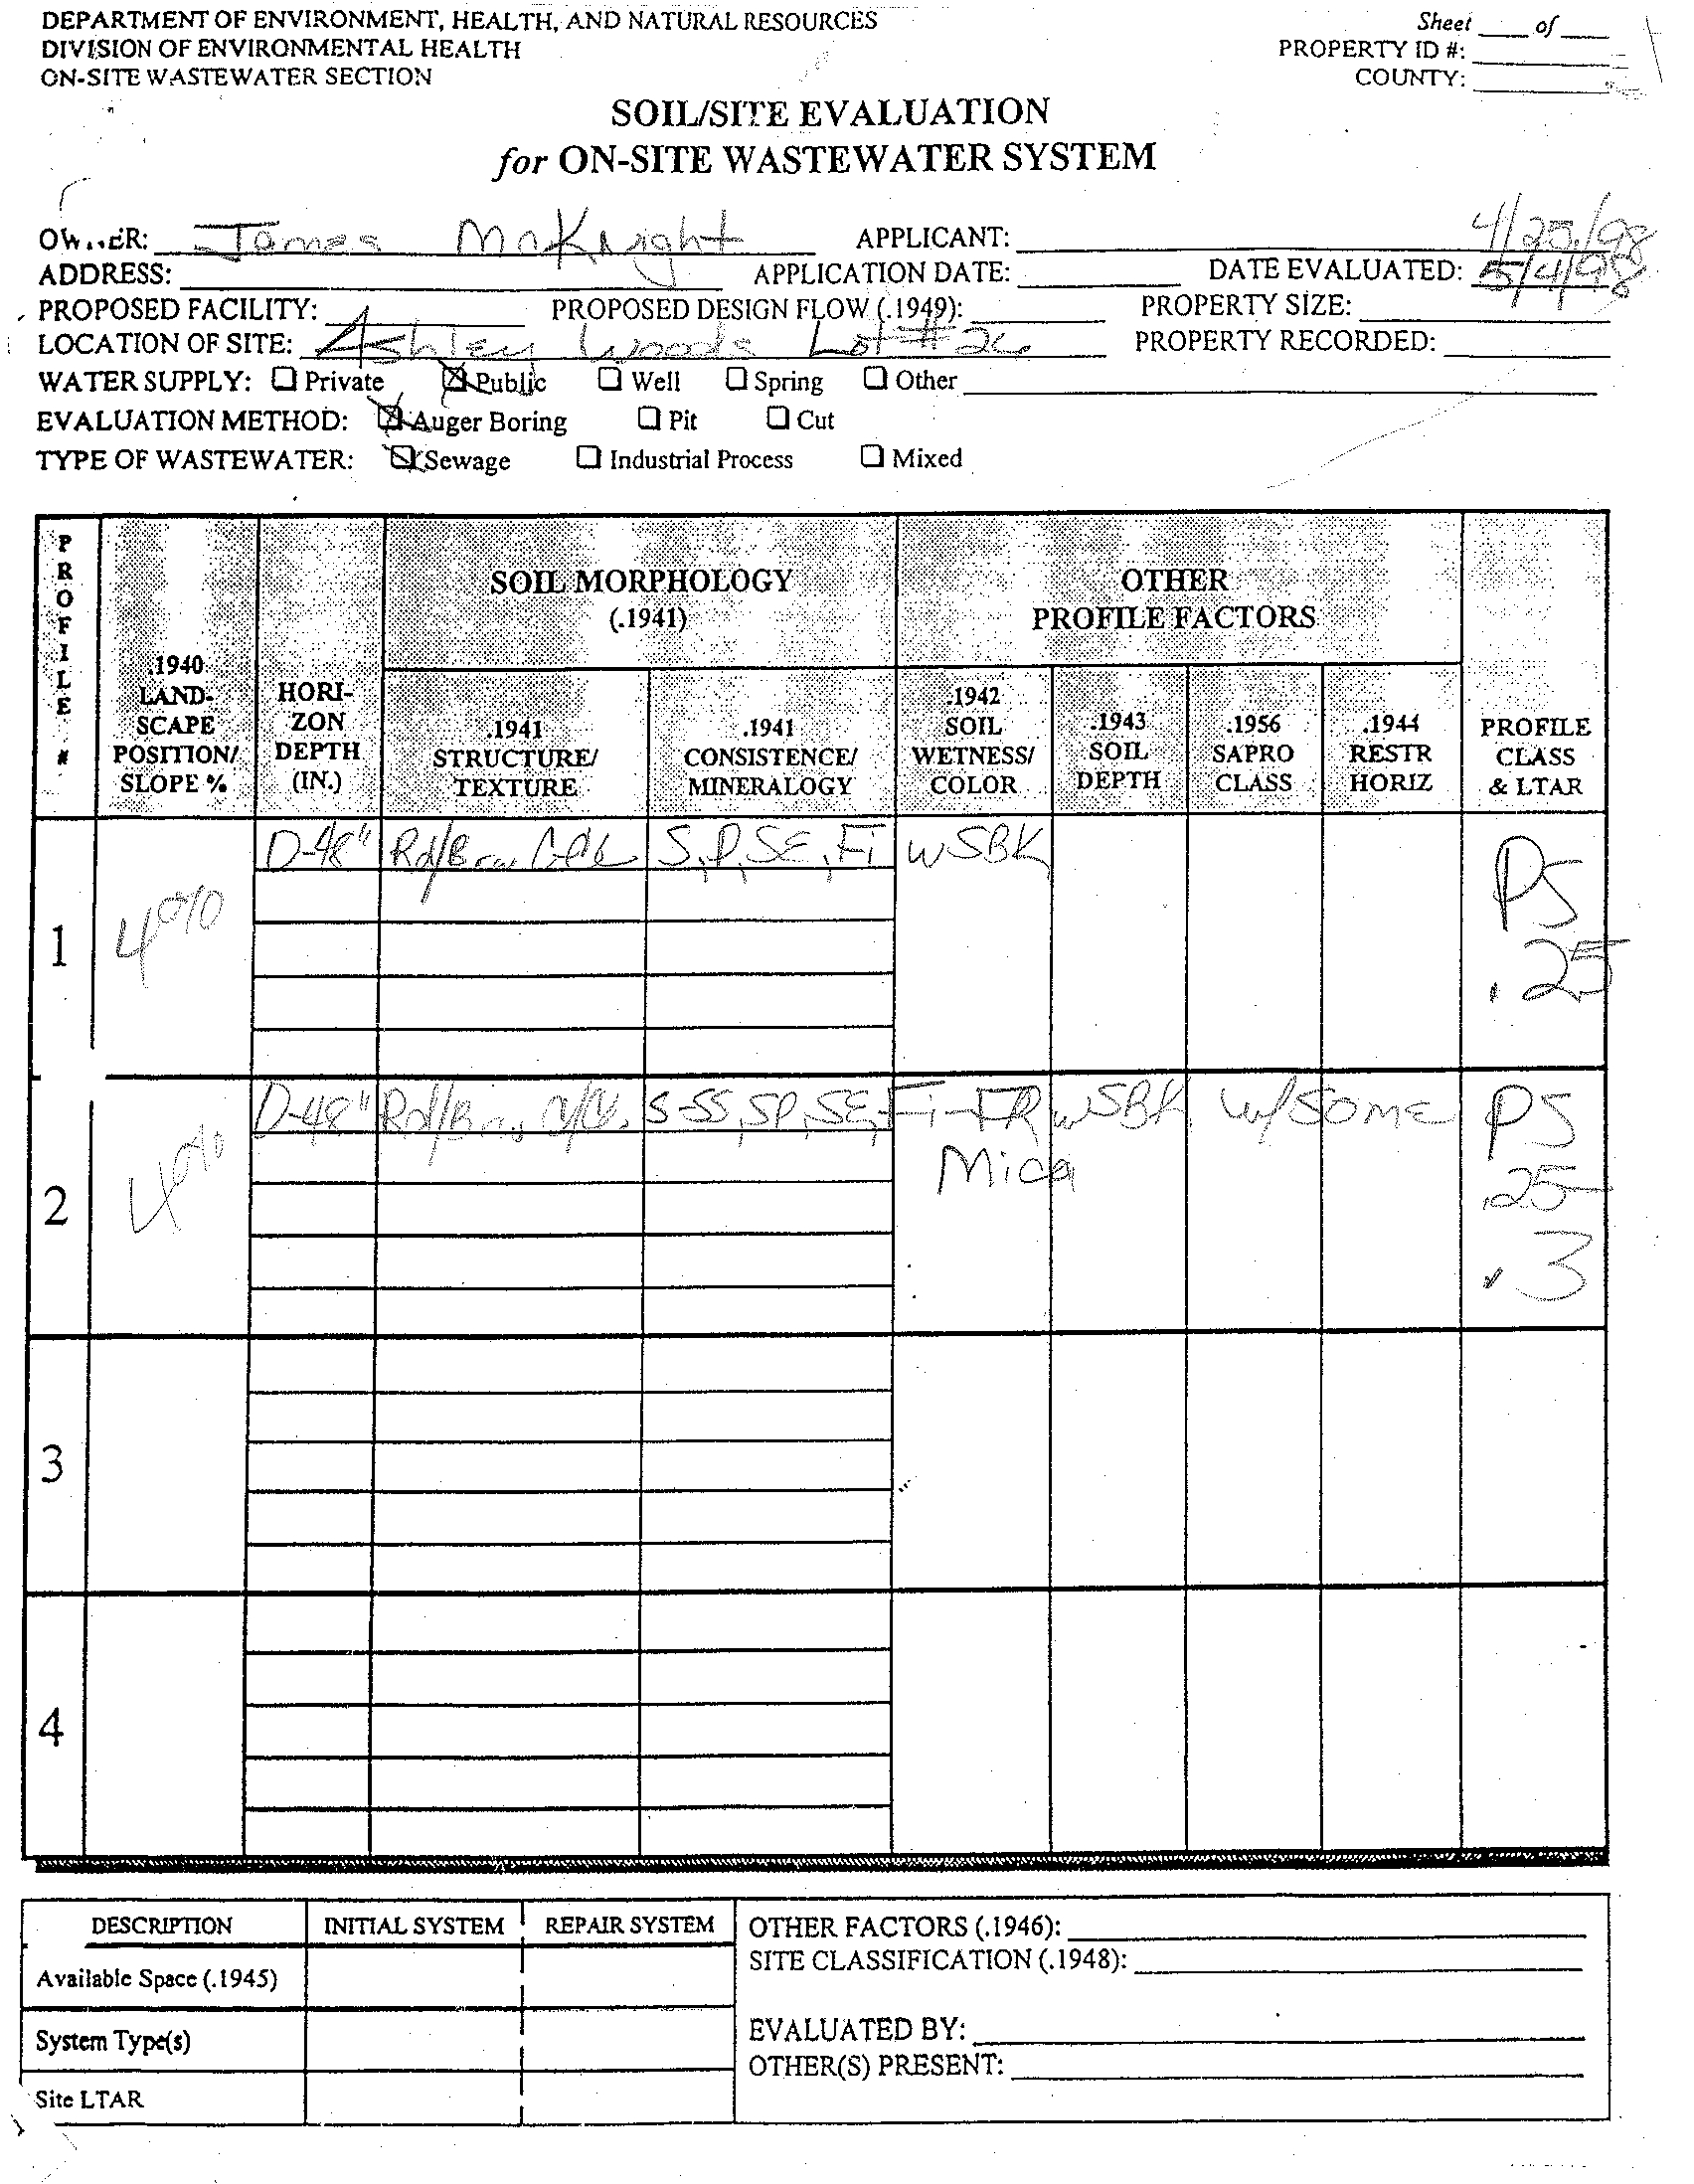 DEPARTMENT OF ENVIRONMENT, HEALTH, AND NATURAL RESOURCES
DIVISION OF ENVIRONMENTAL HEALTH
ON-SITE WASTEWATER SECTION
Sheet ____ of ____
PROPERTY ID #:
COUNTY:
SOIL/SITE EVALUATION
for ON-SITE WASTEWATER SYSTEM
OWNER: James McKnight APPLICANT: 4/20/98
ADDRESS: APPLICATION DATE: DATE EVALUATED: 5/4/98
PROPOSED FACILITY: PROPOSED DESIGN FLOW (.1949): PROPERTY SIZE:
LOCATION OF SITE: Ashley Woods Lot # 26 PROPERTY RECORDED:
WATER SUPPLY: Private Public Well Spring Other
EVALUATION METHOD: Auger Boring Pit Cut
TYPE OF WASTEWATER: Sewage Industrial Process Mixed
PROFILE #
.1940 LAND-SCAPE POSITION/ SLOPE %
HORI-ZON DEPTH (IN.)
SOIL MORPHOLOGY
(.1941)
.1941 STRUCTURE/ TEXTURE
.1941 CONSISTENCE/ MINERALOGY
OTHER
PROFILE FACTORS
.1942 SOIL WETNESS/ COLOR
.1943 SOIL DEPTH
.1956 SAPRO CLASS
.1944 RESTR HORIZ
PROFILE CLASS & LTAR
1 4% 0-48" Rd/Brn S, P, SE, Fi wSBK PS
.25
2 4% 0-48" Rd/Brn S-SS, SP, SE, Fi-FR wSBK w/SOME PS
Mica .25
.3
3
4
DESCRIPTION INITIAL SYSTEM REPAIR SYSTEM
Available Space (.1945)
System Type(s)
Site LTAR
OTHER FACTORS (.1946):
SITE CLASSIFICATION (.1948):
EVALUATED BY:
OTHER(S) PRESENT: